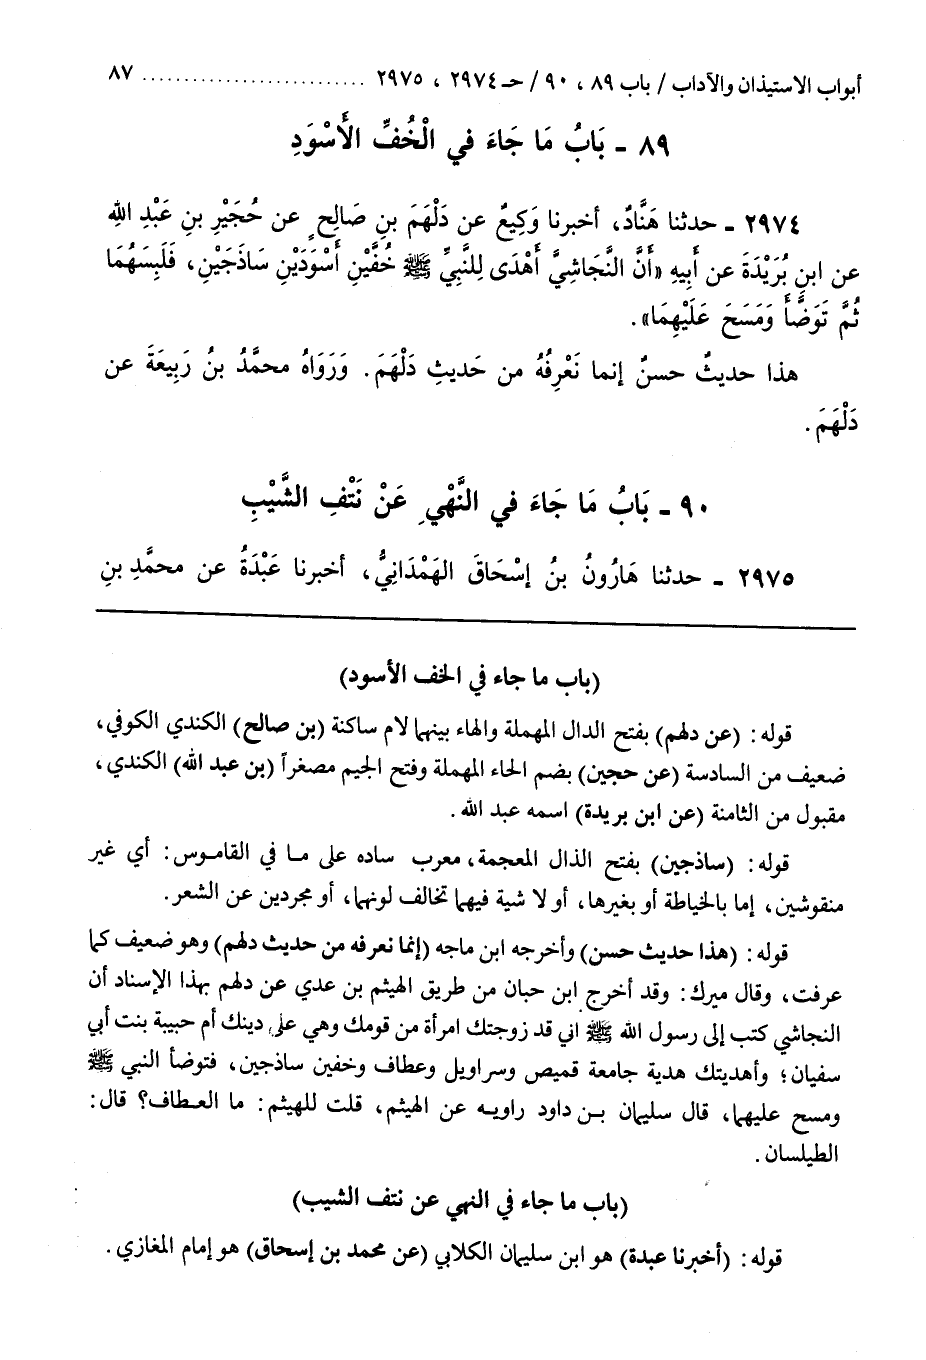 أبواب الاستيذان والآداب / باب ٨٩ ، ٩٠ / حـ ٢٩٧٤ ، ٢٩٧٥ ......................... ٨٧
٨٩ - بَابُ مَا جَاءَ في الْخُفِّ الأَسْوَدِ
٢٩٧٤ - حدثنا هَنَّادٌ، أخبرنا وَكِيعٌ عن دَلْهَمَ بنِ صَالِحٍ عن حُجَيْرِ بنِ عَبْدِ اللهِ
عن ابنِ بُرَيْدَةَ عن أَبِيهِ «أَنَّ النَّجَاشِيَّ أَهْدَى لِلنَّبِيِّ ﷺ خُفَّيْنِ أَسْوَدَيْنِ سَاذَجَيْنِ، فَلَبِسَهُمَا
ثُمَّ تَوَضَّأَ وَمَسَحَ عَلَيْهِمَا».
هذا حديثٌ حسنٌ إنما نَعْرِفُهُ من حَديثِ دَلْهَمَ. وَرَوَاهُ محمَّدُ بنُ رَبِيعَةَ عن
دَلْهَمَ.
٩٠ - بَابُ مَا جَاءَ في النَّهْيِ عَنْ نَتْفِ الشَّيْبِ
٢٩٧٥ - حدثنا هَارُونُ بنُ إسْحَاقَ الهَمْدَانِيُّ، أخبرنا عَبْدَةُ عن محمَّدِ بنِ
(باب ما جاء في الخف الأسود)
قوله: (عن دلهم) بفتح الدال المهملة والهاء بينهما لام ساكنة (بن صالح) الكندي الكوفي،
ضعيف من السادسة (عن حجين) بضم الحاء المهملة وفتح الجيم مصغراً (بن عبد الله) الكندي،
مقبول من الثامنة (عن ابن بريدة) اسمه عبد الله.
قوله: (ساذجين) بفتح الذال المعجمة، معرب ساده على ما في القاموس: أي غير
منقوشين، إما بالخياطة أو بغيرها، أو لا شية فيهما تخالف لونهما، أو مجردين عن الشعر.
قوله: (هذا حديث حسن) وأخرجه ابن ماجه (إنما نعرفه من حديث دلهم) وهو ضعيف كما
عرفت، وقال ميرك: وقد أخرج ابن حبان من طريق الهيثم بن عدي عن دلهم بهذا الإسناد أن
النجاشي كتب إلى رسول الله ﷺ اني قد زوجتك امرأة من قومك وهي على دينك أم حبيبة بنت أبي
سفيان؛ وأهديتك هدية جامعة قميص وسراويل وعطاف وخفين ساذجين، فتوضأ النبي ﷺ
ومسح عليهما، قال سليمان بن داود راويه عن الهيثم، قلت للهيثم: ما العطاف؟ قال:
الطيلسان.
(باب ما جاء في النهي عن نتف الشيب)
قوله: (أخبرنا عبدة) هو ابن سليمان الكلابي (عن محمد بن إسحاق) هو إمام المغازي.